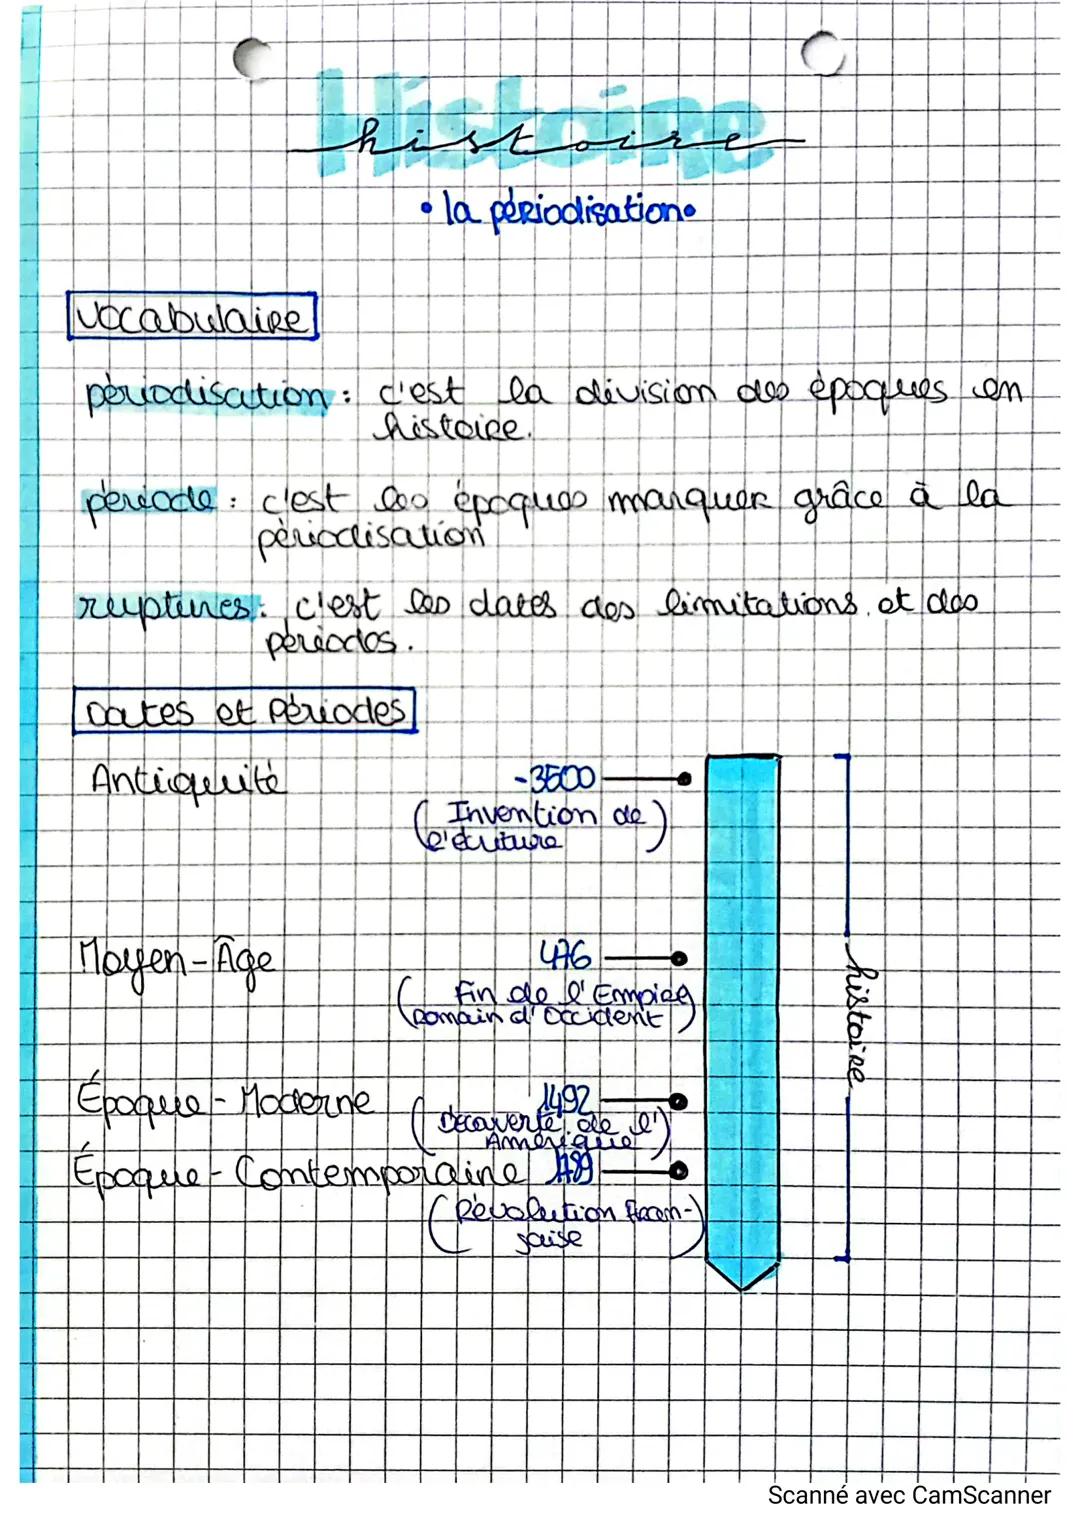 Histoire
histoire
• la périodisation •
vocabulaire
périodisation : c'est la division des époques en
histoire.
période : c'est les époques marquer grâce à la
périodisation
ruptures : c'est les dates des limitations et des
périodes.
Dates et Périodes
Antiquité -3500
(Invention de
l'écriture)
Moyen-Âge 476
(Fin de l'Empire
Romain d'Occident)
histoire
Époque-Moderne 1492
(Découverte de l'
Amérique)
Époque-Contemporaine 1789
(Révolution Fran-
çaise)
Scanné avec CamScanner